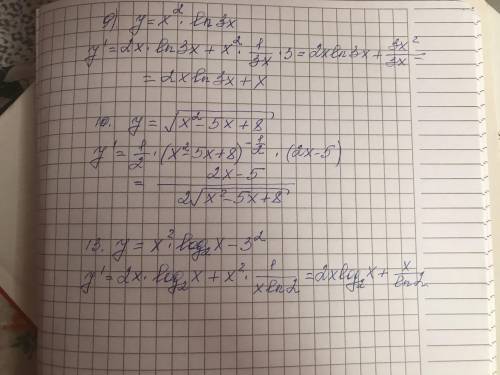 9) y = x² · ln3x
y' = 2x · ln3x + x² · 1/3x · 3 = 2xln3x + 3x²/3x =
= 2xln3x + x
10. y = √(x²-5x+8)
y' = 1/2 · (x²-5x+8)^(-1/2) · (2x-5)
= (2x-5)/(2√(x²-5x+8))
13. y = x² · log₂x - 3²
y' = 2x · log₂x + x² · 1/(xln2) = 2xlog₂x + x/ln2